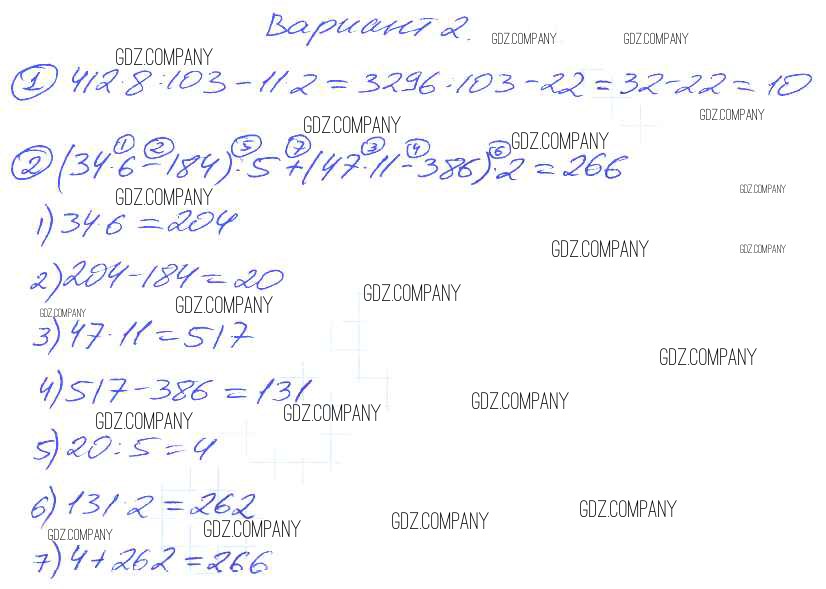 Вариант 2.
GDZ.COMPANY GDZ.COMPANY
GDZ.COMPANY
① 412·8:103-11·2=3296:103-22=32-22=10
GDZ.COMPANY
GDZ.COMPANY
GDZ.COMPANY
① ② ⑤ ⑦ ③ ④ ⑥
② (34·6-184):5+(47·11-386)·2=266
GDZ.COMPANY GDZ.COMPANY
1) 34·6=204
GDZ.COMPANY GDZ.COMPANY
2) 204-184=20
GDZ.COMPANY GDZ.COMPANY
GDZ.COMPANY
3) 47·11=517
GDZ.COMPANY
4) 517-386=131
GDZ.COMPANY GDZ.COMPANY GDZ.COMPANY
5) 20:5=4
6) 131·2=262
GDZ.COMPANY GDZ.COMPANY GDZ.COMPANY GDZ.COMPANY
7) 4+262=266